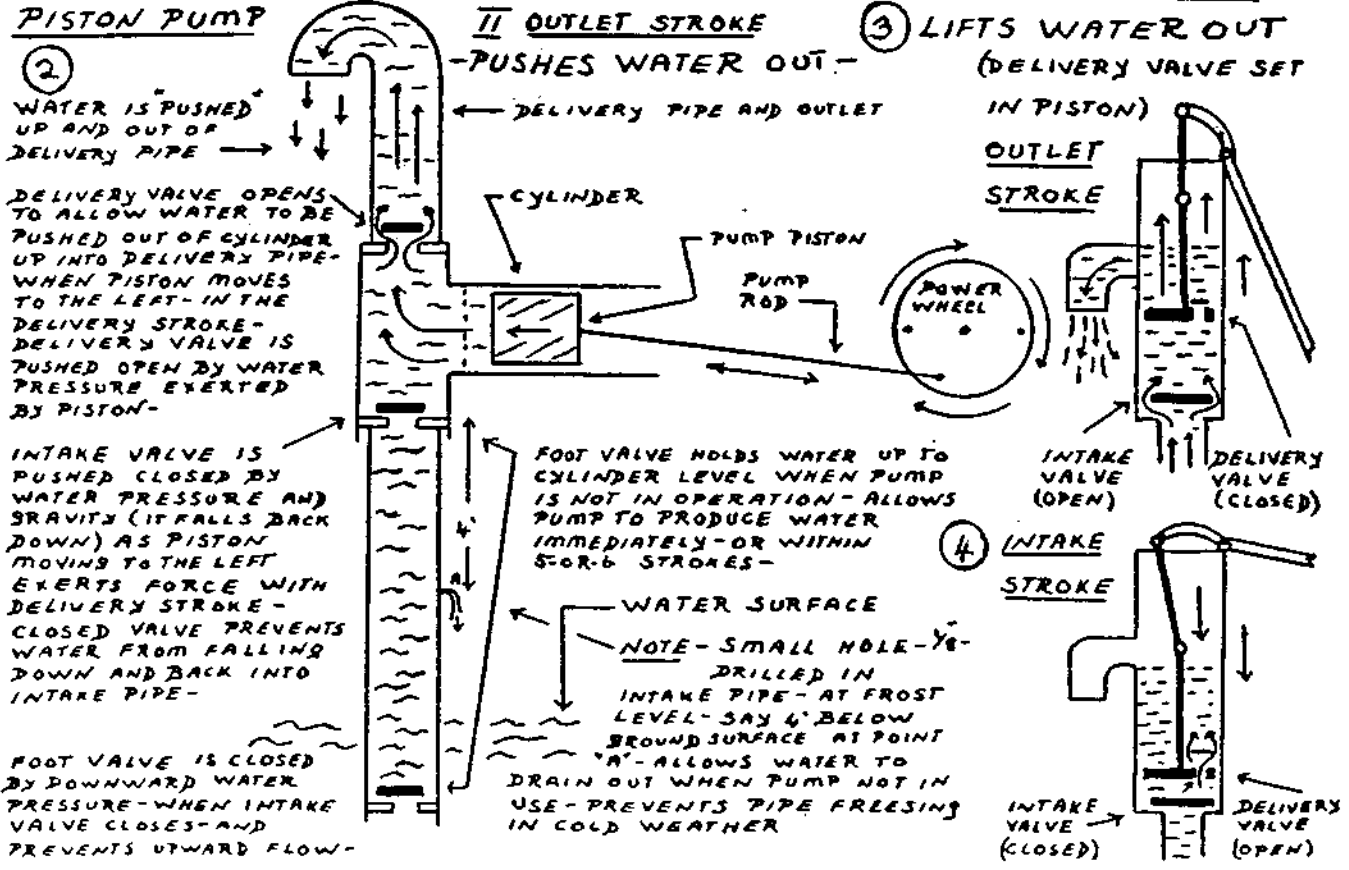 PISTON PUMP
②
WATER IS "PUSHED"
UP AND OUT OF
DELIVERY PIPE
DELIVERY VALVE OPENS
TO ALLOW WATER TO BE
PUSHED OUT OF CYLINDER
UP INTO DELIVERY PIPE-
WHEN PISTON MOVES
TO THE LEFT-IN THE
DELIVERY STROKE-
DELIVERY VALVE IS
PUSHED OPEN BY WATER
PRESSURE EXERTED
BY PISTON-
INTAKE VALVE IS
PUSHED CLOSED BY
WATER PRESSURE AND
GRAVITY (IT FALLS BACK
DOWN) AS PISTON
MOVING TO THE LEFT
EXERTS FORCE WITH
DELIVERY STROKE-
CLOSED VALVE PREVENTS
WATER FROM FALLING
DOWN AND BACK INTO
INTAKE PIPE-
FOOT VALVE IS CLOSED
BY DOWNWARD WATER
PRESSURE-WHEN INTAKE
VALVE CLOSES-AND
PREVENTS UPWARD FLOW-
II OUTLET STROKE
-PUSHES WATER OUT-
DELIVERY PIPE AND OUTLET
CYLINDER
PUMP PISTON
PUMP
ROD
POWER
WHEEL
4'
A
FOOT VALVE HOLDS WATER UP TO
CYLINDER LEVEL WHEN PUMP
IS NOT IN OPERATION-ALLOWS
PUMP TO PRODUCE WATER
IMMEDIATELY-OR WITHIN
5-OR-6 STROKES-
WATER SURFACE
NOTE-SMALL HOLE-1/8"-
DRILLED IN
INTAKE PIPE-AT FROST
LEVEL-SAY 4' BELOW
GROUND SURFACE AT POINT
"A"-ALLOWS WATER TO
DRAIN OUT WHEN PUMP NOT IN
USE-PREVENTS PIPE FREESING
IN COLD WEATHER
③ LIFTS WATER OUT
(DELIVERY VALVE SET
IN PISTON)
OUTLET
STROKE
INTAKE
VALVE
(OPEN)
DELIVERY
VALVE
(CLOSED)
④ INTAKE
STROKE
INTAKE
VALVE
(CLOSED)
DELIVERY
VALVE
(OPEN)